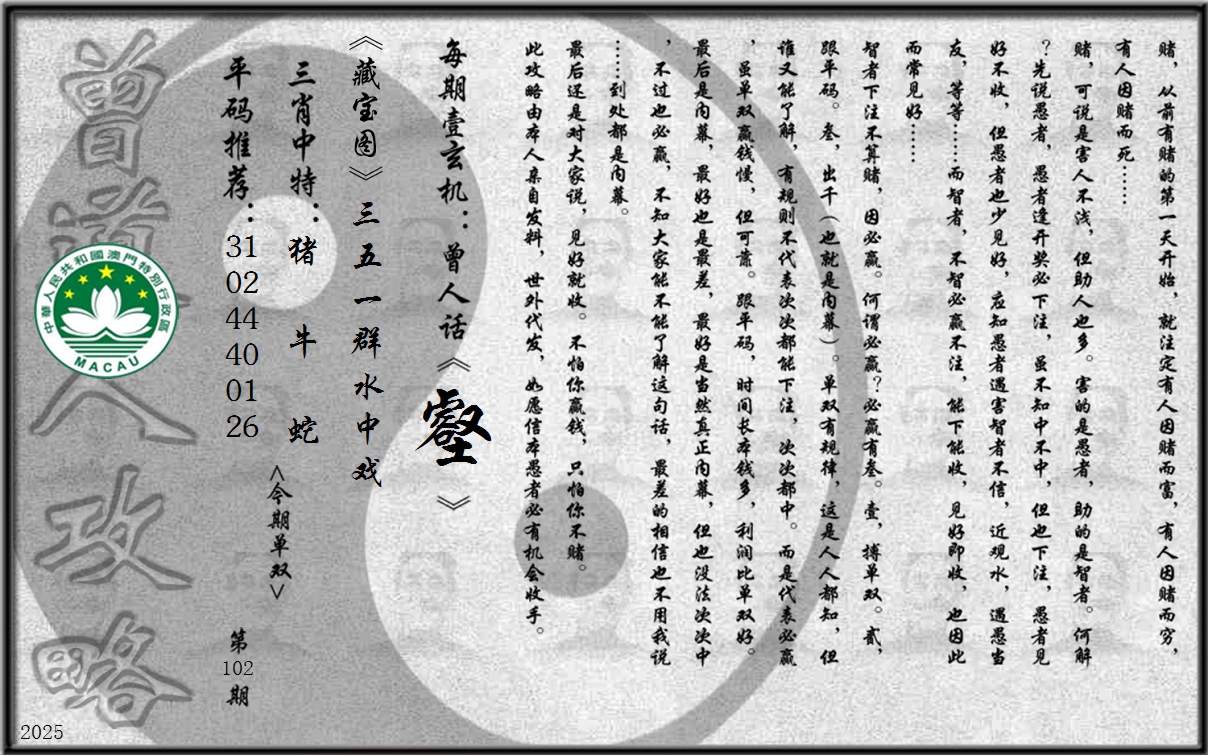 赌，从前有赌的第一天开始，就注定有人因赌而富，有人因赌而穷，
有人因赌而死……
赌，可说是害人不浅，但助人也多。害的是愚者，助的是智者。何解
？先说愚者，愚者逢开奖必下注，虽不知中不中，但也下注，愚者见
好不收，但愚者也少见好，应知愚者遇害智者不信，近观水，遇愚当
友，等等……而智者，不智必赢不注，能下能收，见好即收，也因此
而常见好……
智者下注不算赌，因必赢。何谓必赢？必赢有叁。壹，搏单双。贰，
跟平码。叁，出千（也就是内幕）。单双有规律，这是人人都知，但
谁又能了解，有规则不代表次次都能下注，次次都中。而是代表必赢
，虽单双赢钱慢，但可靠。跟平码，时间长本钱多，利润比单双好。
最后是内幕，最好也是最差，最好是当然真正内幕，但也没法次次中
，不过也必赢，不知大家能不能了解这句话，最差的相信也不用我说
……到处都是内幕。
最后还是对大家说，见好就收。不怕你赢钱，只怕你不赌。
此攻略由本人亲自发料，世外代发，如愿信本愚者必有机会收手。
每期壹玄机：曾人话《壑》
《藏宝图》三五一群水中戏
三肖中特：猪 牛 蛇
<今期单双>
平码推荐：31 02 44 40 01 26
第102期
曾道人攻略
中華人民共和國澳門特別行政區
MACAU
2025